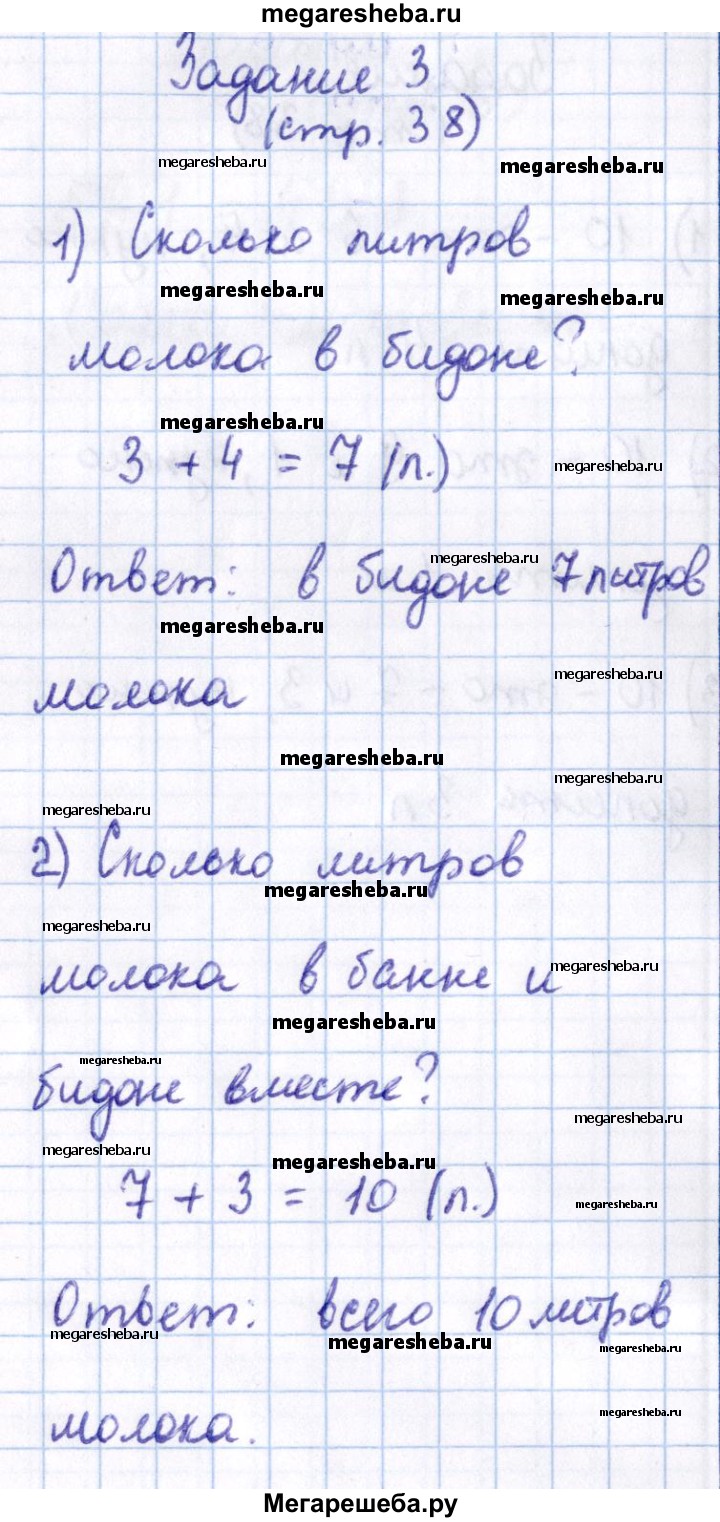 megaresheba.ru
Задание 3
(стр. 38)
megaresheba.ru megaresheba.ru
1) Сколько литров
megaresheba.ru megaresheba.ru
молока в бидоне?
megaresheba.ru
3 + 4 = 7 (л.)
megaresheba.ru
megaresheba.ru
Ответ: в бидоне 7 литров
megaresheba.ru
megaresheba.ru
молока
megaresheba.ru
megaresheba.ru
megaresheba.ru
2) Сколько литров
megaresheba.ru
megaresheba.ru
молока в банке и
megaresheba.ru
megaresheba.ru
megaresheba.ru
бидоне вместе?
megaresheba.ru
megaresheba.ru
megaresheba.ru
7 + 3 = 10 (л.)
megaresheba.ru
Ответ: всего 10 литров
megaresheba.ru megaresheba.ru megaresheba.ru
megaresheba.ru
молока.
Мегарешеба.ру